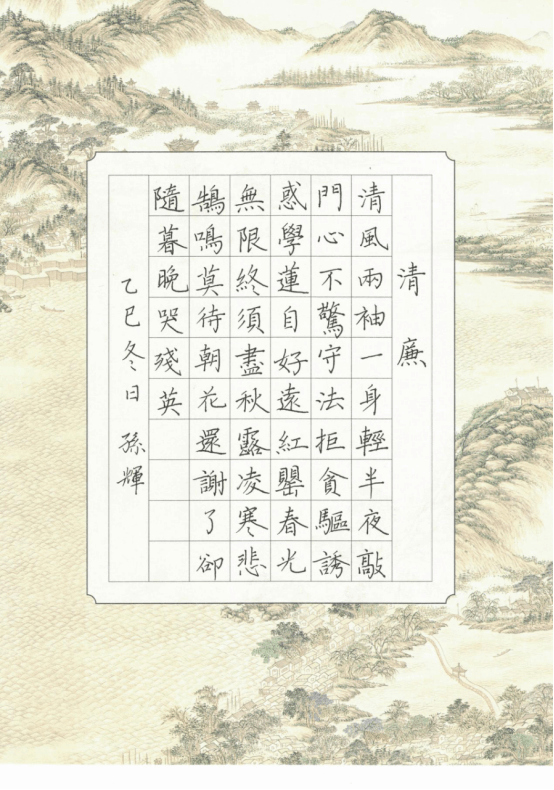 清廉
清風兩袖一身輕半夜敲
門心不驚守法拒貪驅誘
惑學蓮自好遠紅罌春光
無限終須盡秋露凌寒悲
鵠鳴莫待朝花還謝了卻
隨暮晚哭殘英
乙巳冬日 孫輝